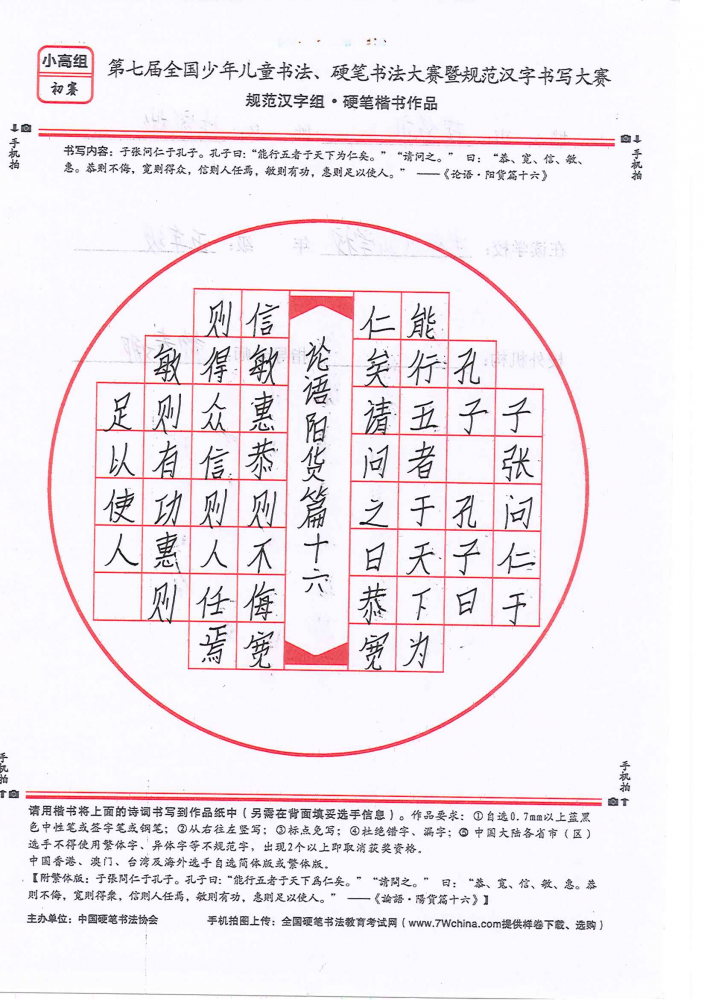 小高组
初赛
第七届全国少年儿童书法、硬笔书法大赛暨规范汉字书写大赛
规范汉字组·硬笔楷书作品
手机拍
手机拍
书写内容：子张问仁于孔子。孔子曰：“能行五者于天下为仁矣。”“请问之。” 曰：“恭、宽、信、敏、
惠。恭则不侮，宽则得众，信则人任焉，敏则有功，惠则足以使人。” ——《论语·阳货篇十六》
子张问仁于
孔子 孔子曰
能行五者于天下为
仁矣请问之曰恭宽
论语阳货篇十六
信敏惠恭则不侮宽
则得众信则人任焉
敏则有功惠则
足以使人
手机拍
手机拍
请用楷书将上面的诗词书写到作品纸中（另需在背面填妥选手信息）。作品要求：①自选0.7mm以上蓝黑
色中性笔或签字笔或钢笔；②从右往左竖写；③标点免写；④杜绝错字、漏字；⑤中国大陆各省市（区）
选手不得使用繁体字、异体字等不规范字，出现2个以上即取消获奖资格。
中国香港、澳门、台湾及海外选手自选简体版或繁体版。
【附繁体版：子張問仁于孔子。孔子曰：“能行五者于天下爲仁矣。”“請問之。” 曰：“恭、宽、信、敏、惠。恭
则不侮，宽则得衆，信则人任焉，敏则有功，惠则足以使人。” ——《論語·陽貨篇十六》】
主办单位：中国硬笔书法协会
手机拍图上传：全国硬笔书法教育考试网（www.7Wchina.com提供样卷下载、选购）